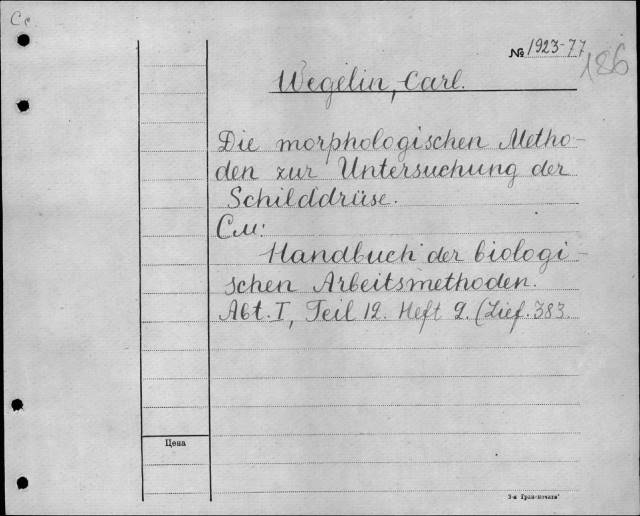 Cc
№ 1923-77
186
Wegelin, Carl.
Die morphologischen Metho-
den zur Untersuchung der
Schilddrüse.
См:
Handbuch der biologi-
schen Arbeitsmethoden.
Abt. I, Teil 12. Heft 2. (Lief. 383.
Цена